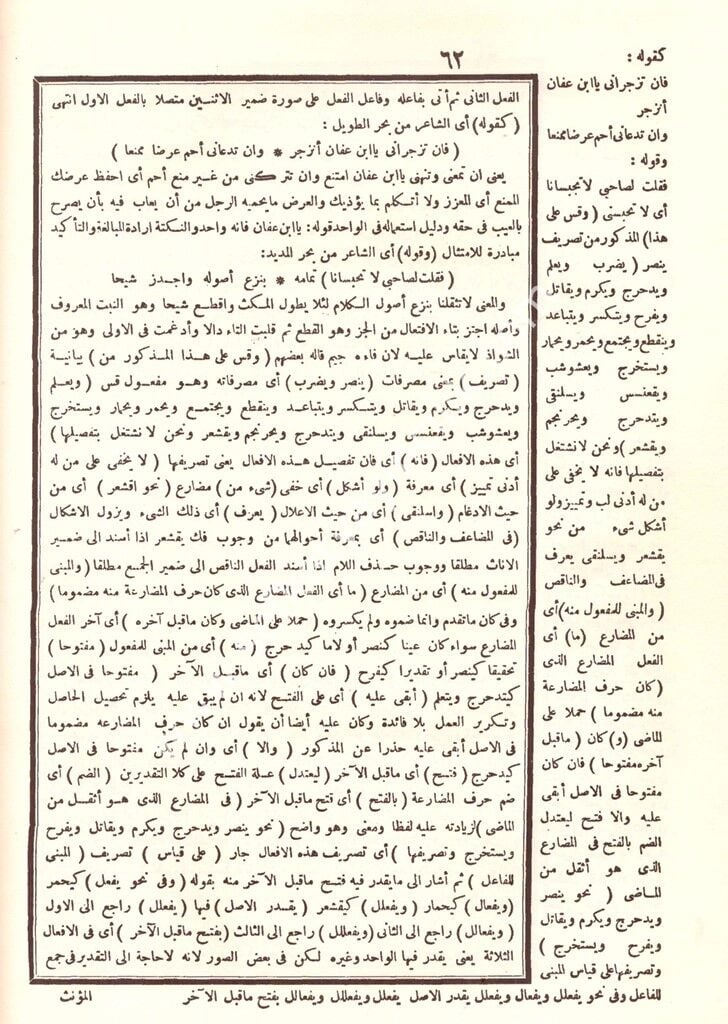 ٦٢
الفعل الثانى ثم أتى بفاعله وفاعل الفعل على صورة ضمير الاثنين متصلا بالفعل الاول انتهى
( كقوله ) أى الشاعر من بحر الطويل :
( فان تزجرانى ياابن عفان أنزجر * وان تدعانى أحم عرضا ممنعا )
يعنى ان تمنعنى وتنهنى ياابن عفان امتنع وان تتركنى من غير منع أحم أى احفظ عرضك
الممنع أى المعزز ولا أتكلم بما يؤذيك والعرض مايحميه الرجل من أن يعاب فيه بأن يصرح
بالعيب فى حقه ودليل استعماله فى الواحد قوله : ياابن عفان فانه واحد والنكتة ارادة المبالغة والتأكيد
مبادرة للامتثال ( وقوله ) أى الشاعر من بحر المديد :
( فقلت لصاحبى لا تحبسانا ) تمامه * بنزع أصوله واجدز شيحا
والمعنى لاتثقلنا بنزع أصول الكلام لئلا يطول المكث واقطع شيحا وهو النبت المعروف
وأصله اجتز بتاء الافتعال من الجز وهو القطع ثم قلبت التاء دالا وأدغمت فى الاولى وهو من
الشواذ لايقاس عليه لان فاءه جيم قاله بعضهم ( وقس على هذا المذكور من ) بيانية
( تصريف ) بمعنى مصرفات ( ينصر ويضرب ) أى مصرفاته وهو مفعول قس ( ويعلم
ويدحرج ويكرم ويقاتل ويتكسر ويتباعد وينقطع ويجتمع ويحمر ويحمار ويستخرج
ويعشوشب ويقعنسس ويسلنقى ويتدحرج ويحرنجم ويقشعر ونحن لانشتغل بتفصيلها )
أى هذه الافعال ( فانه ) أى فان تفصيل هذه الافعال يعنى تصريفها ( لا يخفى على من له
أدنى تمييز ) أى معرفة ( ولو أشكل ) أى خفى ( شىء من ) مضارع ( نحو اقشعر ) أى من
حيث الادغام ( واسلنقى ) أى من حيث الاعلال ( يعرف ) أى ذلك الشىء ويزول الاشكال
( فى المضاعف والناقص ) أى بمعرفة أحوالهما من وجوب فك يقشعر اذا أسند الى ضمير
الاناث مطلقا ووجوب حذف اللام اذا أسند الفعل الناقص الى ضمير الجمع مطلقا ( والمبنى
للمفعول منه ) أى من المضارع ( ما أى الفعل المضارع الذى كان حرف المضارعة منه مضموما )
وفى كان ماتقدم وانما ضموه ولم يكسروه ( حملا على الماضى وكان ماقبل آخره ) أى آخر الفعل
المضارع سواء كان عينا كنصر أو لاما كيد حرج ( منه ) أى من المبنى للمفعول ( مفتوحا )
تحقيقا كنصر أو تقديرا كيفرح ( فان كان ) أى ماقبل الآخر ( مفتوحا فى الاصل
كيتدحرج ويتعلم ( أبقى عليه ) أى على الفتح لانه ان لم يبق عليه يلزم تحصيل الحاصل
وتكرير العمل بلا فائدة وكان عليه أيضا أن يقول ان كان حرف المضارعه مضموما
فى الاصل أبقى عليه حذرا عن المذكور ( والا ) أى وان لم يكن مفتوحا فى الاصل
كيدحرج ( فتح ) أى ماقبل الآخر ( ليعتدل ) علة الفتح على كلا التقديرين ( الضم ) أى
ضم حرف المضارعة ( بالفتح ) أى فتح ماقبل الآخر ( فى المضارع الذى هو أثقل من
الماضى ) لزيادته عليه لفظا ومعنى وهو واضح ( نحو ينصر ويدحرج ويكرم ويقاتل ويفرح
ويستخرج وتصريفها ) أى تصريف هذه الافعال جار ( على قياس ) تصريف ( المبنى
للفاعل ) ثم أشار الى مايقدر فيه فتح ماقبل الآخر منه بقوله ( وفى نحو يفعل ) كيحمر
( ويفعال ) كيحمار ( ويفعلل ) كيقشعر ( يقدر الاصل ) فيها ( يفعلل ) راجع الى الاول
( ويفعالل ) راجع الى الثانى ( ويفعللل ) راجع الى الثالث ( بفتح ماقبل الآخر ) أى فى الافعال
الثلاثة يعنى يقدر فيها الواحد وغيره لكن فى بعض الصور لانه لاحاجة الى التقدير فى جمع
المؤنث
كقوله :
فان تزجرانى ياابن عفان
أنزجر
وان تدعانى أحم عرضا ممنعا
وقوله :
فقلت لصاحبى لاتحبسانا
أى لا تحبسنى ( وقس على
هذا ) المذكور من تصريف
ينصر ( يضرب ويعلم
ويدحرج ويكرم ويقاتل
ويفرح ويتكسر ويتباعد
وينقطع ويجتمع ويحمر ويحمار
ويستخرج ويعشوشب
ويقعنسس ويسلنقى
ويتدحرج ويحرنجم
ويقشعر ) ونحن لانشتغل
بتفصيلها فانه لا يخفى على
من له أدنى لب وتمييز ولو
أشكل شىء من نحو
يقشعر ويسلنقى يعرف
فى المضاعف والناقص
( والمبنى للمفعول منه ) أى
من المضارع ( ما ) أى
الفعل المضارع الذى
( كان حرف المضارعة
منه مضموما ) حملا على
الماضى ( و ) كان ( ماقبل
آخره مفتوحا ) فان كان
مفتوحا فى الاصل أبقى
عليه والا فتح ليعتدل
الضم بالفتح فى المضارع
الذى هو أثقل من
الماضى ( نحو ينصر
ويدحرج ويكرم ويقاتل
ويفرح ويستخرج )
وتصريفها على قياس المبنى
للفاعل وفى نحو يفعلل ويفعال ويفعلل يقدر الاصل يفعلل ويفعللل ويفعالل بفتح ماقبل الآخر